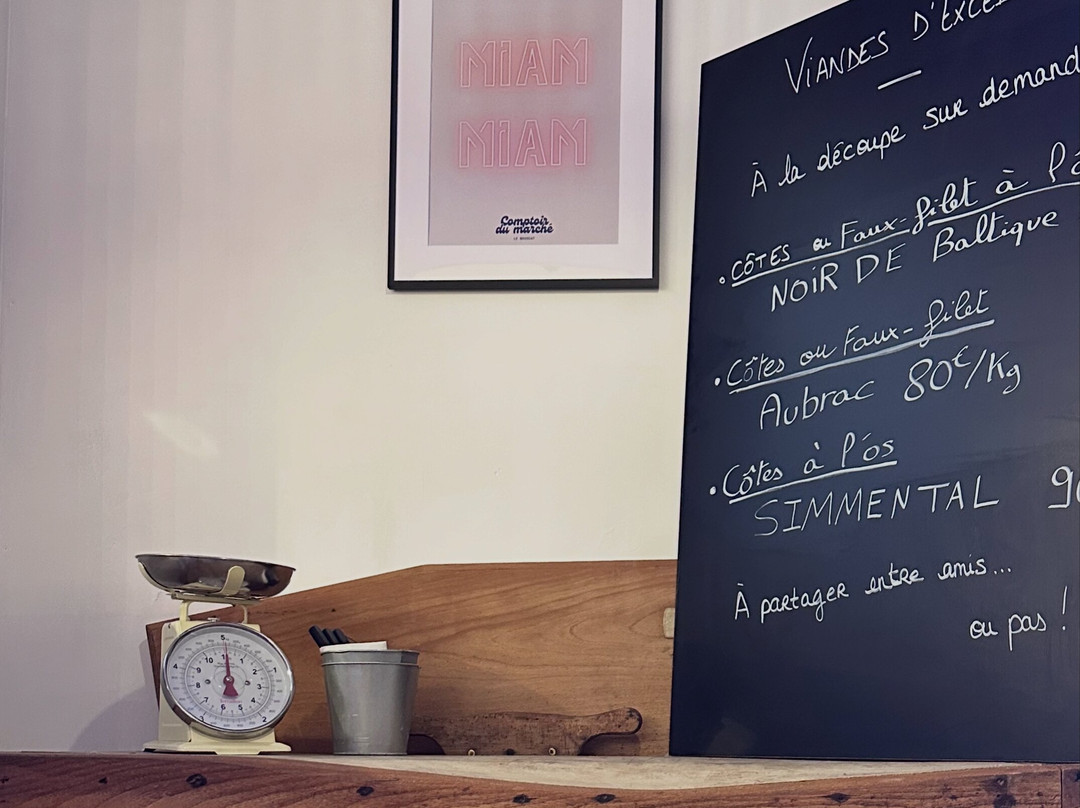 MIAM
MIAM
Comptoir
du marché
VIANDES D'EXCE
À la découpe sur demand
• CÔTES ou Faux-filet à l'
NOIR DE Baltique
• Côtes ou Faux-filet
Aubrac 80€/Kg
• Côtes à l'os
SIMMENTAL 9
À partager entre amis...
ou pas !